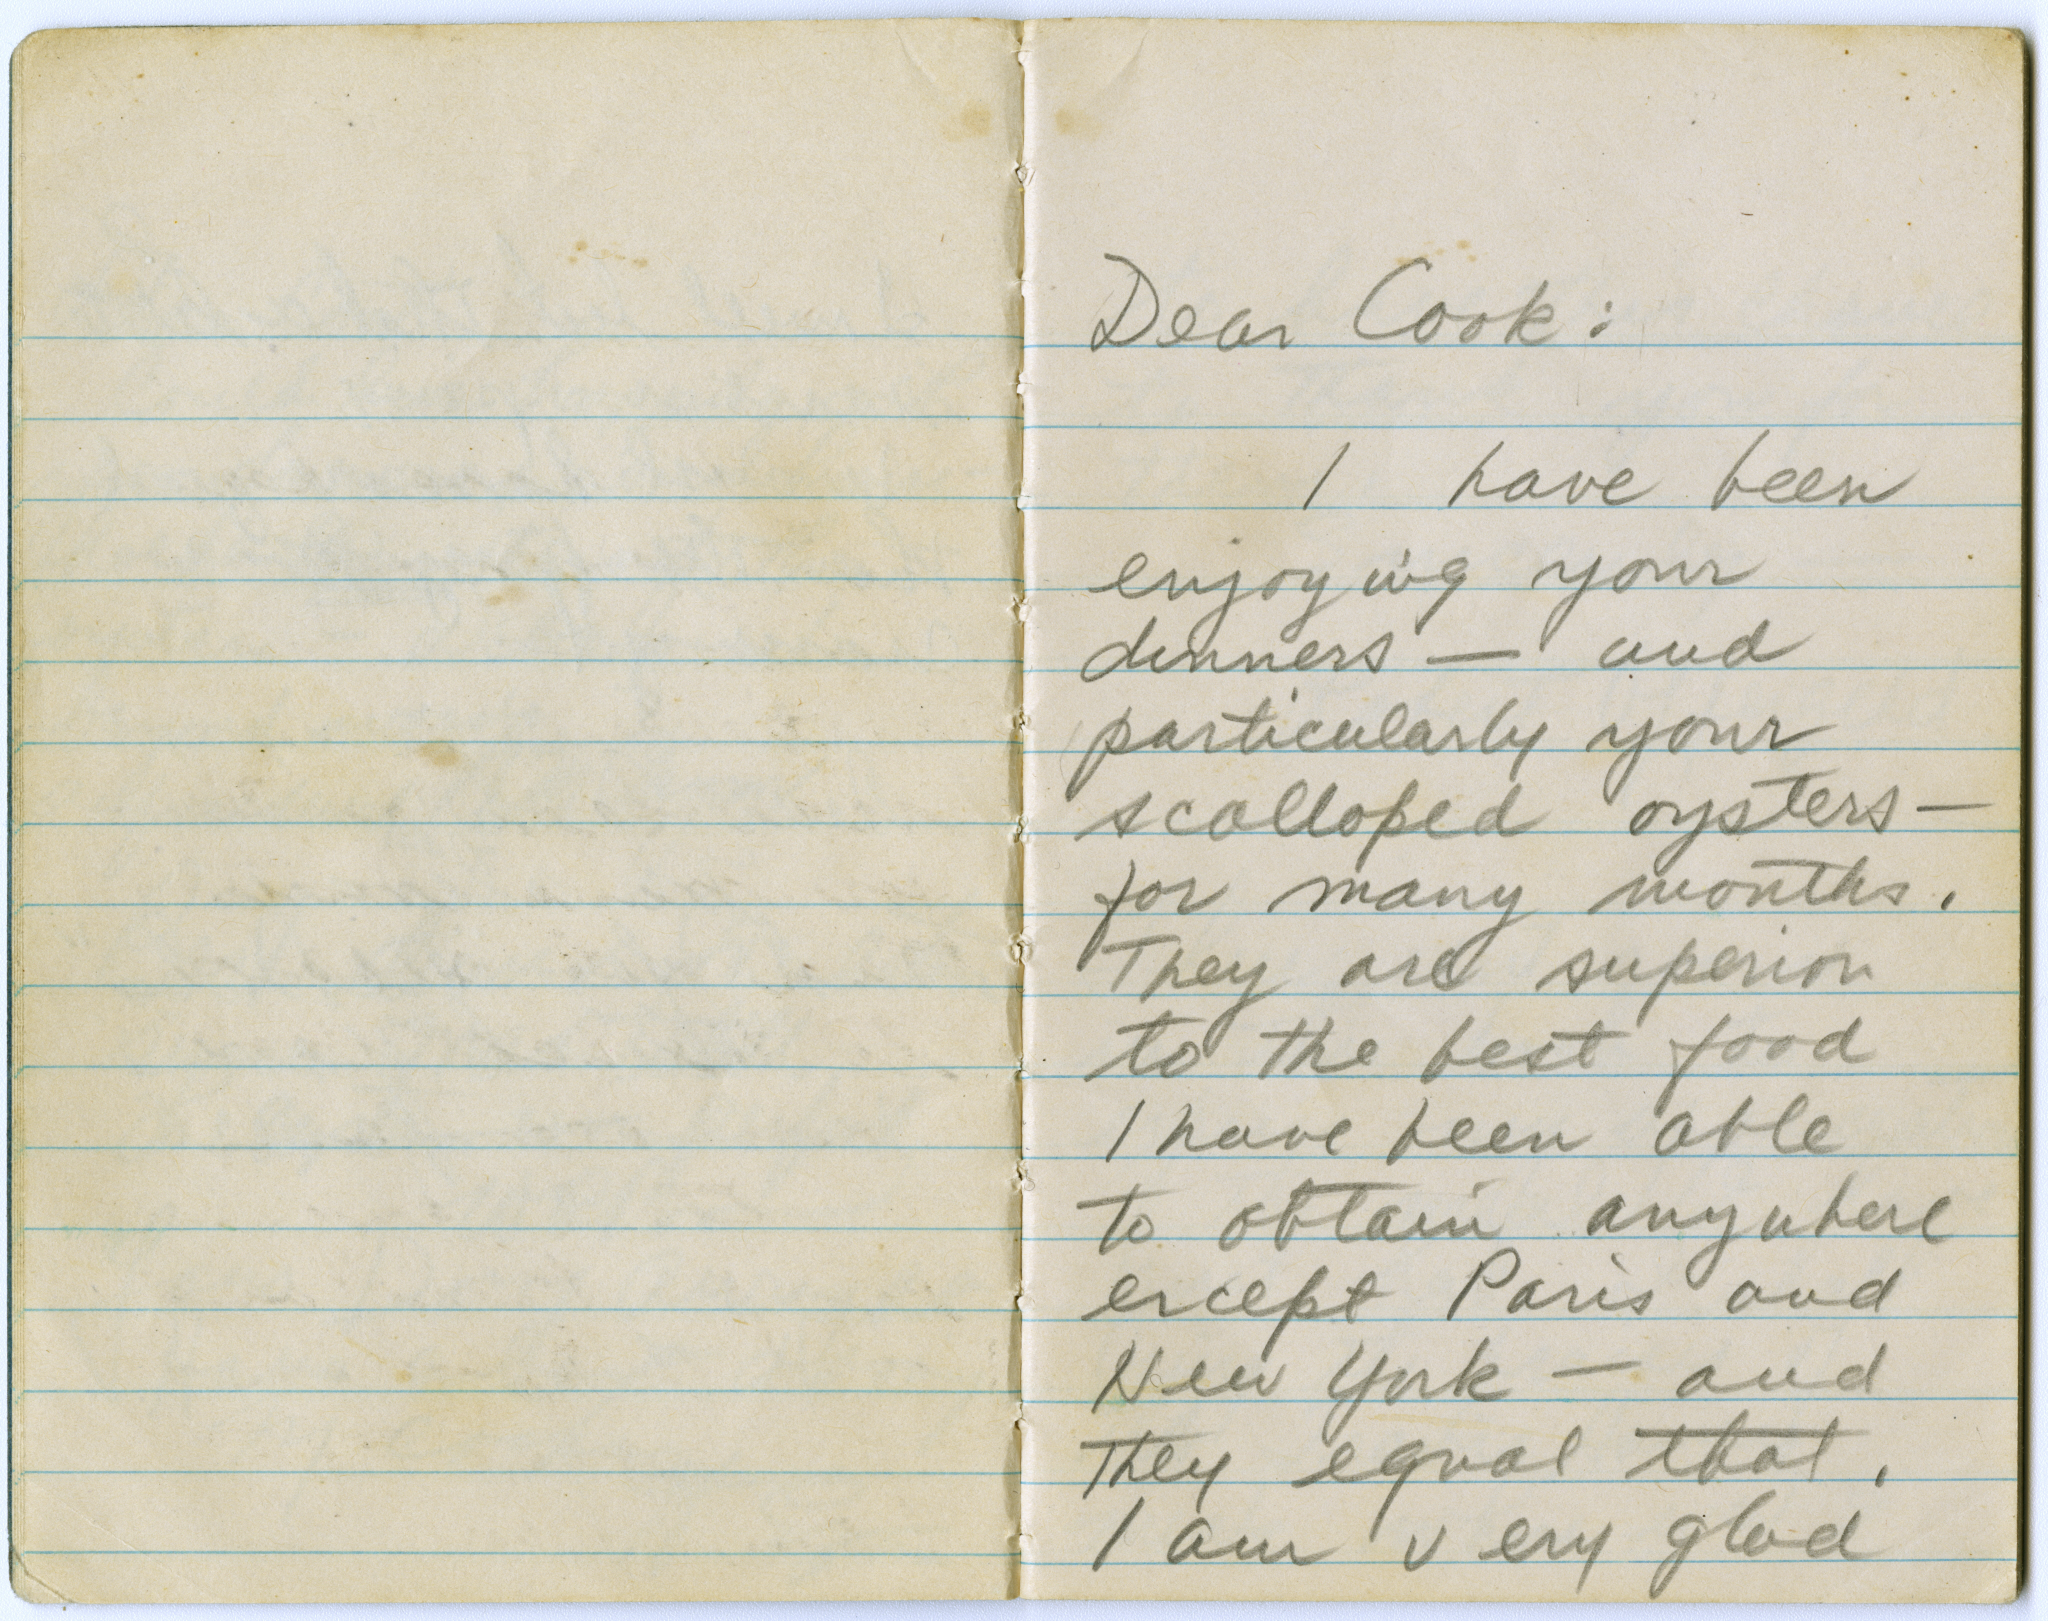 Dear Cook:
I have been
enjoying your
dinners — and
particularly your
scalloped oysters —
for many months.
They are superior
to the best food
I have been able
to obtain anywhere
except Paris and
New York — and
they equal that.
I am very glad